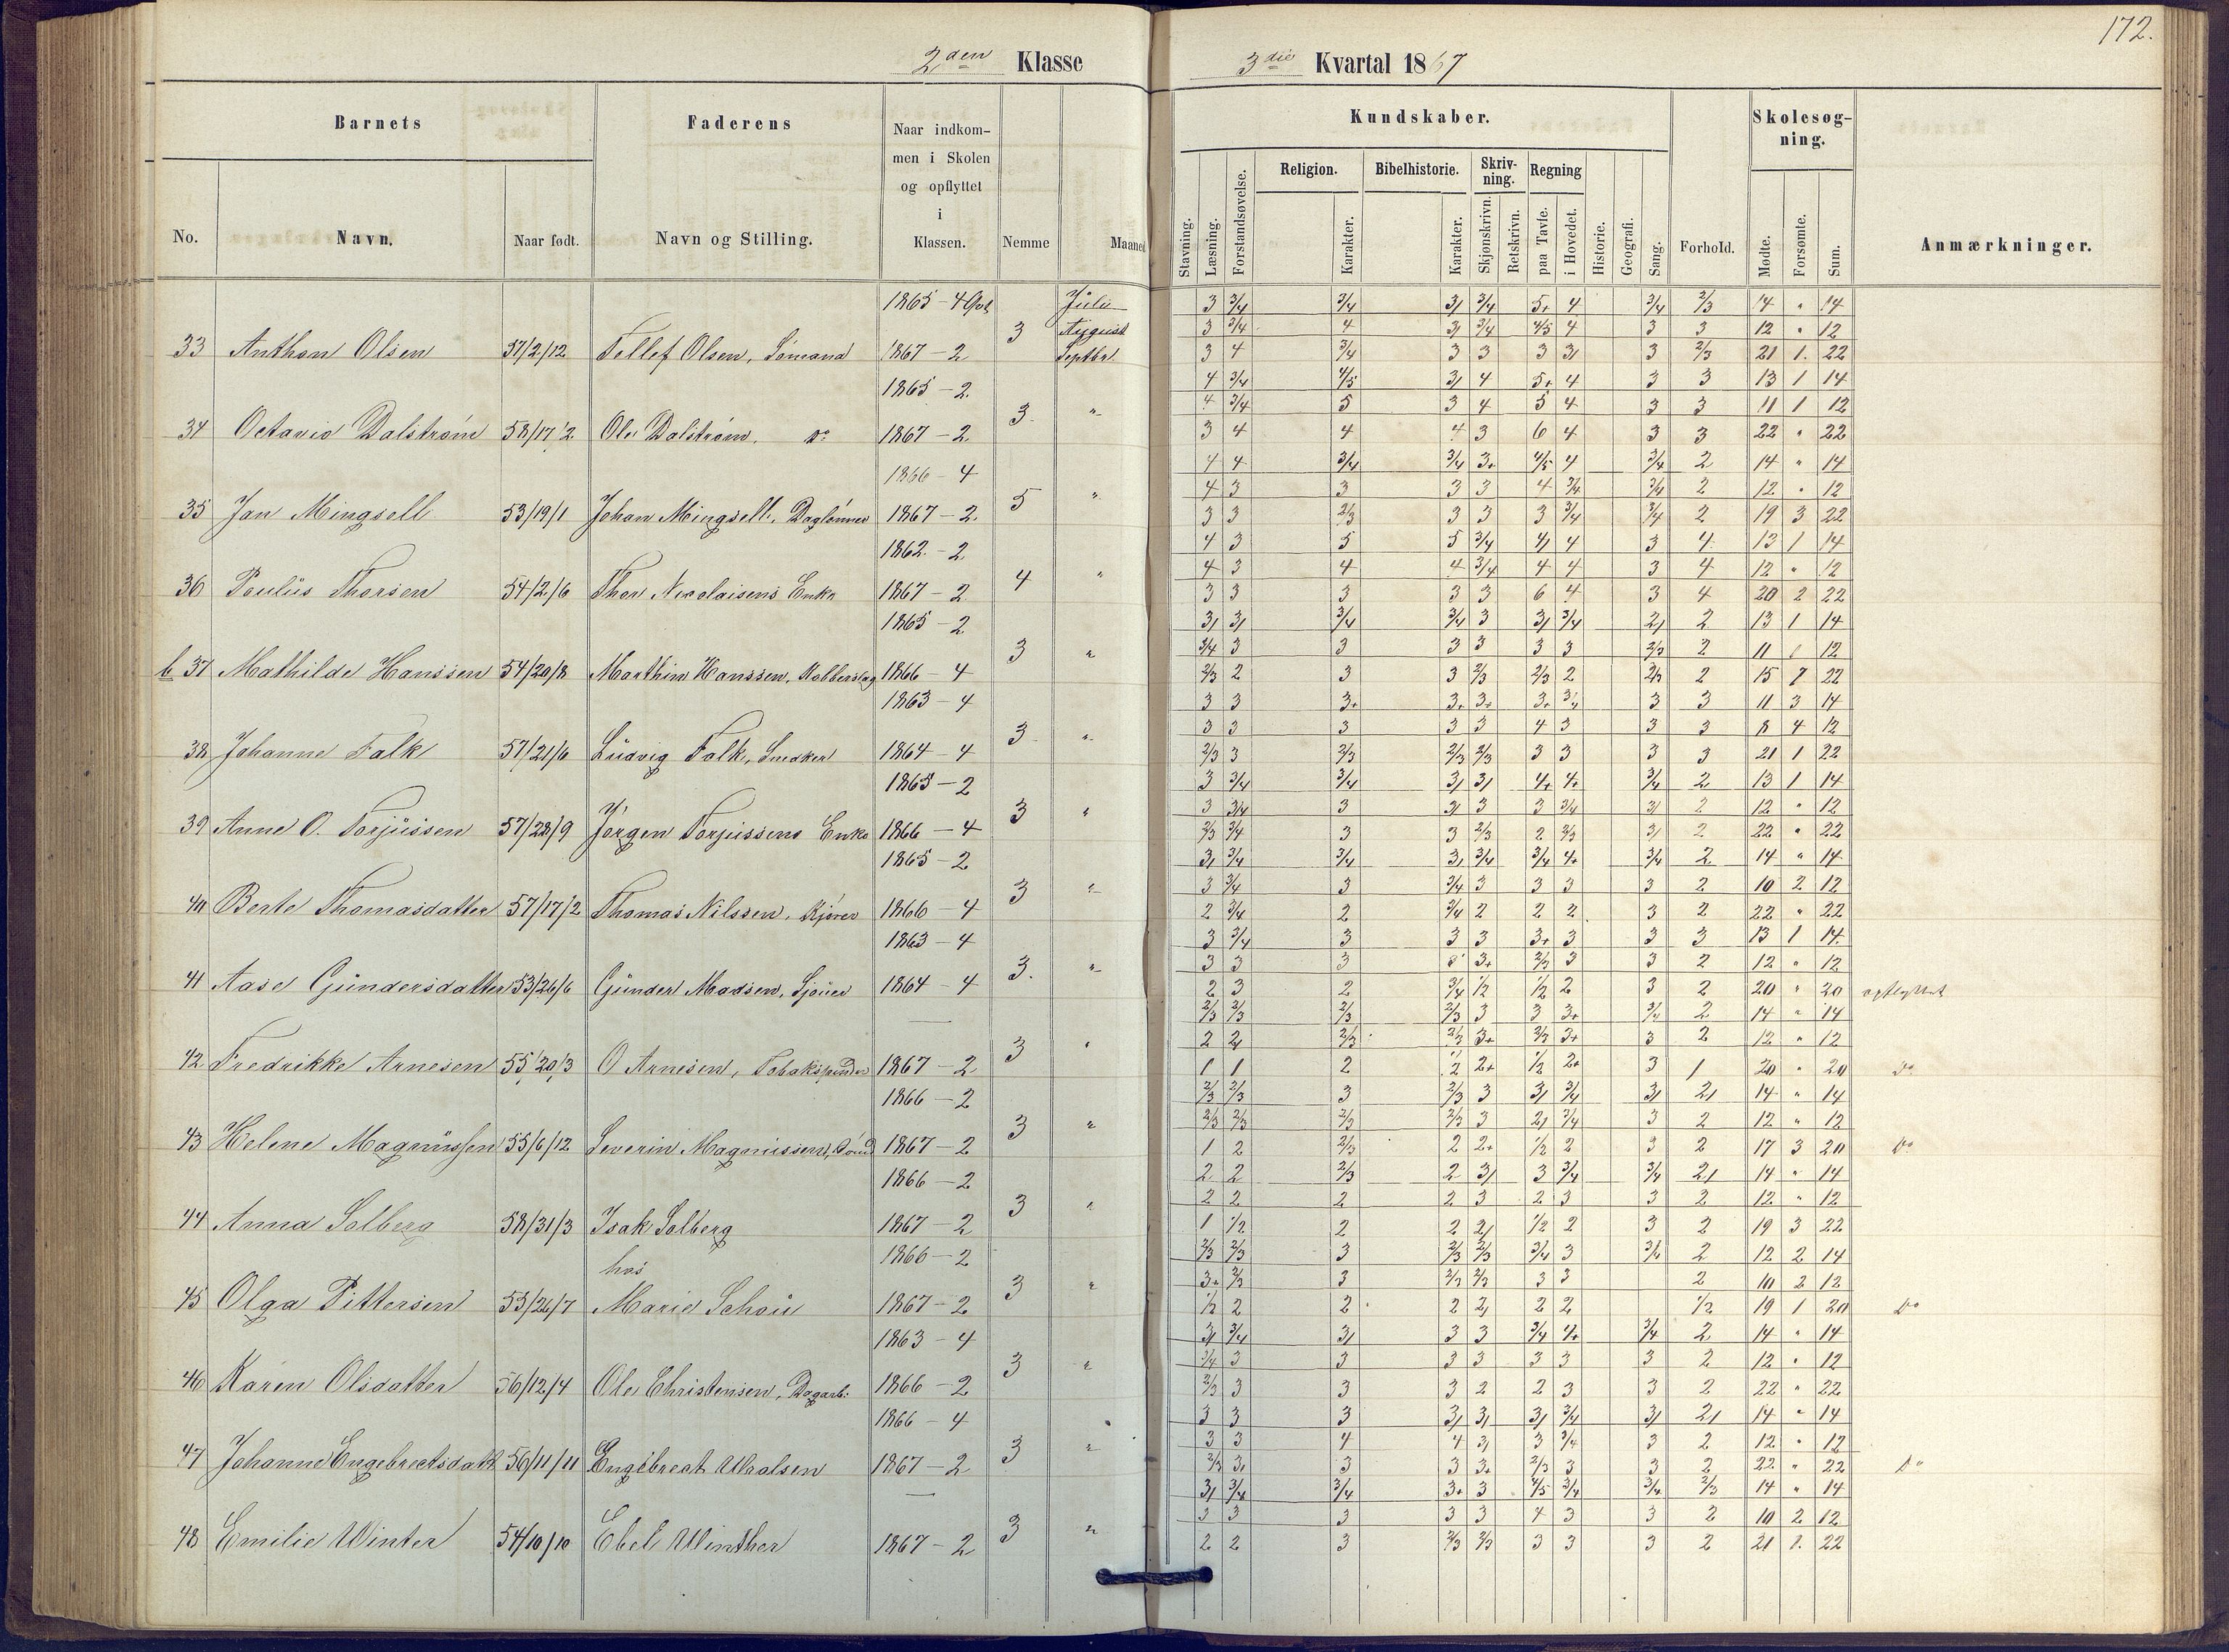 172.
2den Klasse
3die Kvartal 1867
Barnets
Faderens
Naar indkom-
men i Skolen
og opflyttet
i
Klassen.
No.
Navn.
Naar født.
Navn og Stilling.
Nemme
Maaned
Kundskaber.
Skolesøg-
ning.
Religion.
Bibelhistorie.
Skriv-
ning.
Regning
Stavning.
Læsning.
Forstandsøvelse.
Karakter.
Karakter.
Skjønskrivn.
Retskrivn.
paa Tavle.
i Hovedet.
Historie.
Geografi.
Sang.
Forhold.
Mødte.
Forsømte.
Sum.
Anmærkninger.
1865 - 4 Juli 3 3/4 3/4 3/ 3/4 5+ 4 3/4 2/3 14 " 14
3 August 3 3/4 4 3/ 3/4 4/5 4 3 3 12 " 12
33 Anthon Olsen 57/2/12 Tellef Olsen, Sømand 1867 - 2 Septbr 3 4 3/4 3 3 3 3/ 3 2/3 21 1. 22
1865 - 2. 4 3/4 4/5 3/ 4 5+ 4 3 3 13 1 14
3 " 4 3/4 5 3 4 5 4 3 3 11 1 12
34 Octavio Dalstrøm 58/17/2 Ole Dalstrøm, Do 1867 - 2 3 4 4 4 3 6 4 3 3 22 " 22
1866 - 4 4 4 3/4 3/4 3+ 4/5 4 3/4 2 14 " 14
5 " 4 3 3 3 3 4 3/4 3/4 2 12 " 12
35 Jan Mingsell 53/19/1 Johan Mingsell, Daglønner 1867 - 2. 3 3 2/3 3 3 3 3/4 3/4 2 19 3 22
1862 - 2 4 3 5 5 3/4 4/ 4 3 4 13 1 14
4 " 4 3 4 4 3/4 4 4 3 4 12 " 12
36 Paulus Thorsen 54/2/6 Thor Nicolaisens Enke 1867 - 2 3 3 3 3 3 6 4 3 4 20 2 22
1865 - 2 3/ 3/ 3/4 3/4 3 3/ 3/4 2/ 2 13 1 14
3 " 3/4 3 3 3 3 3 3 2/3 2 11 1 12
b 37 Mathilde Hanssen 54/20/8 Marthin Hanssen, Kobberslag 1866 - 4 2/3 2 3 3 2/3 2/3 2 2/3 2 15 7 22
1863 - 4 3 3 3+ 3+ 3+ 3+ 3/4 3 3 11 3 14
3 " 3 3 3 3 3 4 3 3 3 8 4 12
38 Johanne Falk 57/21/6 Ludvig Falk, Snedker 1864 - 4 2/3 3 2/3 2/3 2/3 3 3 3 3 21 1 22
1865 - 2 3 3/4 3/4 3/ 3/ 4+ 4+ 3/4 2 13 1 14
3 " 3 3/4 3 3/ 3 3 3/4 3/ 2 12 " 12
39 Anne O. Torjussen 57/28/9 Jørgen Torjussens Enke 1866 - 4 2/3 3/4 3 3 2/3 2 2/3 3/ 2 22 " 22
1865 - 2 3/ 3/4 3/4 3/ 3/4 3/4 4+ 3/4 2 14 " 14
3 " 3 3/4 3 3/4 3 3 3 3 2 10 2 12
40 Berte Thomasdatter 57/17/2 Thomas Nilssen, Kjører 1866 - 4 2 3/4 2 3/4 2 2 2 3 2 22 " 22
1863 - 4 3 3/4 3 3 3 3+ 3 3 3 13 1 14
3. " 3 3 3 3 3+ 2/3 3 3 2 12 " 12
41 Aase Gundersdatter 53/26/6 Gunder Madsen, Sjouer 1864 - 4 2 3 2 3/4 1/2 1/2 2 3 2 20 " 20 opflyttet
— 2/3 2/3 2/3 2/3 3 3 3+ 3/4 2 14 " 14
3 " 2 2/ 2/3 2/3 3+ 2/3 3+ 3 2 12 " 12
42 Fredrikke Arnesen 55/20/3 O Arnesen, Tobakspinder 1867 - 2 1 1 2 1/2 2+ 1/2 2+ 3 1 20 " 20 Do
1866 - 2 2/3 2/3 3 2/3 3 3/ 3/4 3/ 2/ 14 " 14
3 " 2/3 2/3 2/3 2/3 3 2/ 3/4 3 2 12 " 12
43 Helene Magnussen 55/6/12 Severin Magnussen, 1867 - 2 1 2 2/3 2 2+ 1/2 2 3 2 17 3 20 Do
1866 - 2 2 2 2/3 2 3/ 3 3/4 3/4 2/ 14 " 14
3 " 2 2 2 2 3 2 3 3 2 12 " 12
44 Anna Solberg 58/31/3 Isak Solberg 1867 - 2 1 1/2 2 2 2/ 1/2 2 3 2 19 3 22
hos 1866 - 2 2/3 2/3 3 2/3 2/3 3/4 3 3/4 2 12 2 14
3 " 3+ 2/3 3 2/3 2/3 3 3 2 10 2 12
45 Olga Pittersen 53/26/7 Marie Schou 1867 - 2 1/2 2 2 2 2/ 2 2 1/2 19 1 20 Do
1863 - 4 3/ 3/4 3/ 3 3 3/4 4+ 3/4 2 14 " 14
3 " 3/4 3 3 3 3 3 3 3 2 12 " 12
46 Karen Olsdatter 56/12/4 Ole Christensen, Dagarb. 1866 - 2 2/3 3 3 3 2 2 3 3 2 22 " 22
1866 - 4 3 3 3 3/ 3/ 3/ 3/4 3/ 2/ 14 " 14
3 " 3 3 4 4 3/ 3 3/4 3 2 12 " 12
47 Johanne Engebrectsdatt 56/11/11 Engebrect Wraalsen 1867 - 2 2/3 3/ 3 3 3+ 2/3 3 3 2 22 " 22 Do
— 3/ 3/4 3/4 3+ 3 4/5 3/4 3/4 2/3 14 " 14
3 " 3 3 3 3 3 4 3 3 2 10 2 12
48 Emilie Winter 54/10/10 Ebel Winther 1867 - 2 2 2 3 2/3 2/3 3 3 3 2 21 1. 22